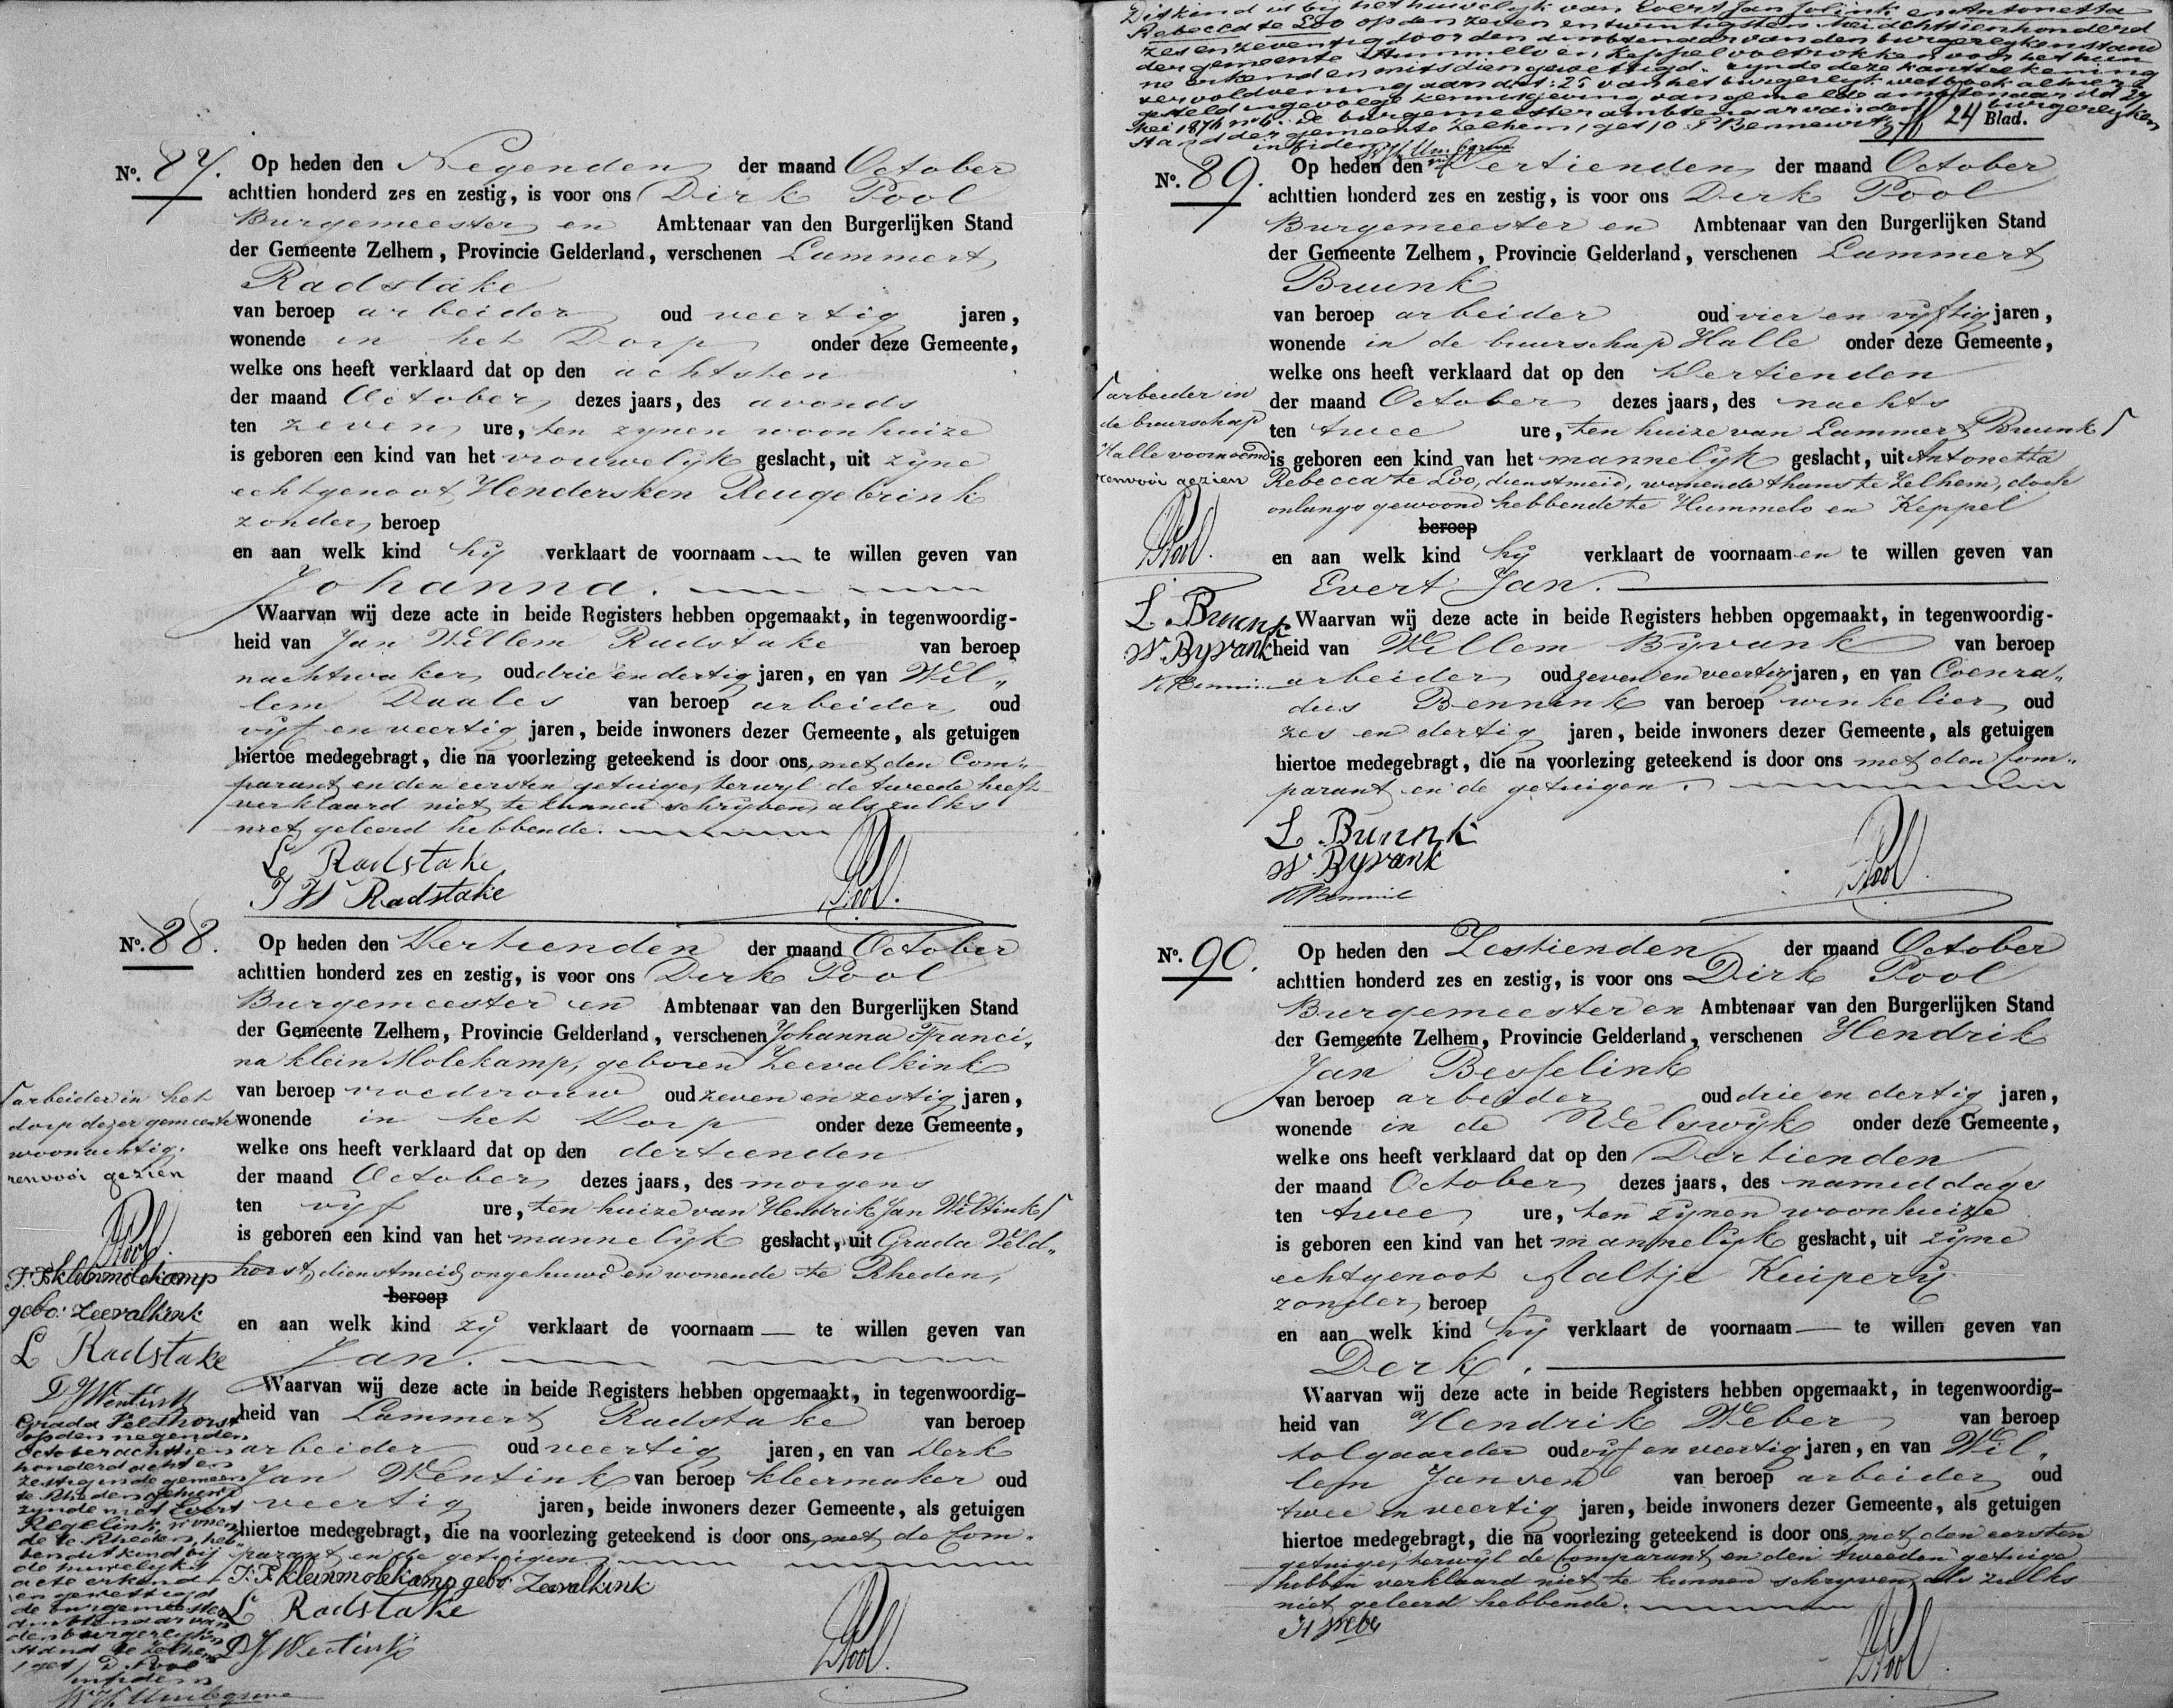 No. 87. Op heden den Negenden der maand October
achttien honderd zes en zestig, is voor ons Dirk Pool
Burgemeester en Ambtenaar van den Burgerlijken Stand
der Gemeente Zelhem, Provincie Gelderland, verschenen Lammert
Radstake
van beroep arbeider oud veertig jaren,
wonende in het Dorp onder deze Gemeente,
welke ons heeft verklaard dat op den achtsten
der maand October dezes jaars, des avonds
ten zeven ure, ten zynen woonhuize
is geboren een kind van het vrouwelyk geslacht, uit zyne
echtgenoot Hendersken Reugebrink
zonder beroep
en aan welk kind hy verklaart de voornaam te willen geven van
Johanna.
Waarvan wij deze acte in beide Registers hebben opgemaakt, in tegenwoordig-
heid van Jan Willem Radstake van beroep
nachtwaker oud drie en dertig jaren, en van Wil„
lem Daales van beroep arbeider oud
vyf en veertig jaren, beide inwoners dezer Gemeente, als getuigen
hiertoe medegebragt, die na voorlezing geteekend is door ons, met den Com„
parant en den eersten getuige, terwyl de tweede heeft
verklaard niet te kunnen schryven, als zulks
niet geleerd hebbende.
L Radstake
J W Radstake
Pool.
No. 88. Op heden den Dertienden der maand October
achttien honderd zes en zestig, is voor ons Derk Pool
Burgemeester en Ambtenaar van den Burgerlijken Stand
der Gemeente Zelhem, Provincie Gelderland, verschenen Johanna Franci„
na klein Molekamp, geboren Zeevalkink
van beroep vroedvrouw oud zeven en zestig jaren,
wonende in het Dorp onder deze Gemeente,
welke ons heeft verklaard dat op den dertienden
der maand October dezes jaars, des morgens
ten vyf ure, ten huize van Hendrik Jan Wiltink
is geboren een kind van het mannelyk geslacht, uit Grada Veld„
horst, dienstmeid, ongehuwd en wonende te Rheden,
beroep
en aan welk kind zy verklaart de voornaam te willen geven van
Jan.
Waarvan wij deze acte in beide Registers hebben opgemaakt, in tegenwoordig-
heid van Lammert Radstake van beroep
arbeider oud veertig jaren, en van Derk
Jan Wentink van beroep kleermaker oud
veertig jaren, beide inwoners dezer Gemeente, als getuigen
hiertoe medegebragt, die na voorlezing geteekend is door ons, met de Com„
parant en de getuigen.
J. F. kleinmolekamp gebo: Zeevalkink
L Radstake
D J Wentink
Pool.
arbeider in het
dorp dezer gemeente
woonachtig.
renvooi gezien
Pool.
J. F. kleinmolekamp
gebo: Zeevalkink
L Radstake
D J Wentink
Grada Veldhorst
op den negenden
October achttien
honderd acht en
zestig in de gemeen
te Rheden gehuwd
zynde met Evert
Regelink, wonen
de te Rheden, heb„
ben dit kind bij
de huwelyks
acte erkend
en gewettigd
de burgemeester
ambtenaar van
den burgerlyken
stand te Zelhem
(get) D. Pool
infidem
Dit kind is bij het huwelyk van Evert Jan Jolink en Antonetta
Rebecca te Loo op den zeven en twintigsten Mei achttienhonderd
zes en zeventig door den ambtenaar van den burgerlyken stand
der gemeente Hummelo en Keppel voltrokken voor het hun
ne erkend en mitsdien gewettigd. zynde deze kantteekening
ter voldoening aan art: 25 van het burgerlyk wetboek alhier
gesteld ingevolge kennisgeving van gemelde ambtenaar dd 27
Mei 1876 no 6. De burgemeester ambtenaar van den burgerlyken
stand der gemeente Zelhem, (get)
infidem
24 Blad.
No. 89. Op heden den Dertienden der maand October
achttien honderd zes en zestig, is voor ons Derk Pool
Burgemeester en Ambtenaar van den Burgerlijken Stand
der Gemeente Zelhem, Provincie Gelderland, verschenen Lammert
Buunk
van beroep arbeider oud vier en vyftig jaren,
wonende in de buurschap Halle onder deze Gemeente,
welke ons heeft verklaard dat op den Dertienden
der maand October dezes jaars, des nachts
ten twee ure, ten huize van Lammert Buunk
is geboren een kind van het mannelyk geslacht, uit Antonetta
Rebecca te Loo, dienstmeid, wonende thans te Zelhem, doch
onlangs gewoond hebbende te Hummelo en Keppel
beroep
en aan welk kind hy verklaart de voornaamen te willen geven van
Evert Jan.
Waarvan wij deze acte in beide Registers hebben opgemaakt, in tegenwoordig-
heid van Willem Byvank van beroep
arbeider oud zeven en veertig jaren, en van Coenra„
dus Bennink van beroep winkelier oud
zes en dertig jaren, beide inwoners dezer Gemeente, als getuigen
hiertoe medegebragt, die na voorlezing geteekend is door ons met den Com„
parant en de getuigen.
L. Buunk
W Byvank
Pool
arbeider in
de buurschap
Halle voornoemd
renvooi gezien
Pool.
L. Buunk
W Byvank
No. 90. Op heden den Zestienden der maand October
achttien honderd zes en zestig, is voor ons Dirk Pool
Burgemeester en Ambtenaar van den Burgerlijken Stand
der Gemeente Zelhem, Provincie Gelderland, verschenen Hendrik
Jan Besselink
van beroep arbeider oud drie en dertig jaren,
wonende in de Velswyk onder deze Gemeente,
welke ons heeft verklaard dat op den Dertienden
der maand October dezes jaars, des namiddags
ten twee ure, ten zynen woonhuize
is geboren een kind van het mannelyk geslacht, uit zyne
echtgenoot Aaltje Kuipery
zonder beroep
en aan welk kind hy verklaart de voornaam te willen geven van
Derk.
Waarvan wij deze acte in beide Registers hebben opgemaakt, in tegenwoordig-
heid van Hendrik Weber van beroep
tolgaarder oud vyf en veertig jaren, en van Wil„
lem Jansen van beroep arbeider oud
twee en veertig jaren, beide inwoners dezer Gemeente, als getuigen
hiertoe medegebragt, die na voorlezing geteekend is door ons, met den eersten
getuige, terwyl de Comparant en den tweeden getuige
hebben verklaard niet te kunnen schryven, als zulks
niet geleerd hebbende.
H Weber
Pool